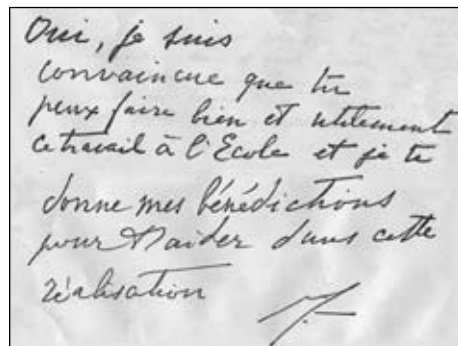 Oui, je suis
convaincue que tu
peux faire bien et utilement
ce travail à l'Ecole et je te
donne mes bénédictions
pour t'aider dans cette
réalisation